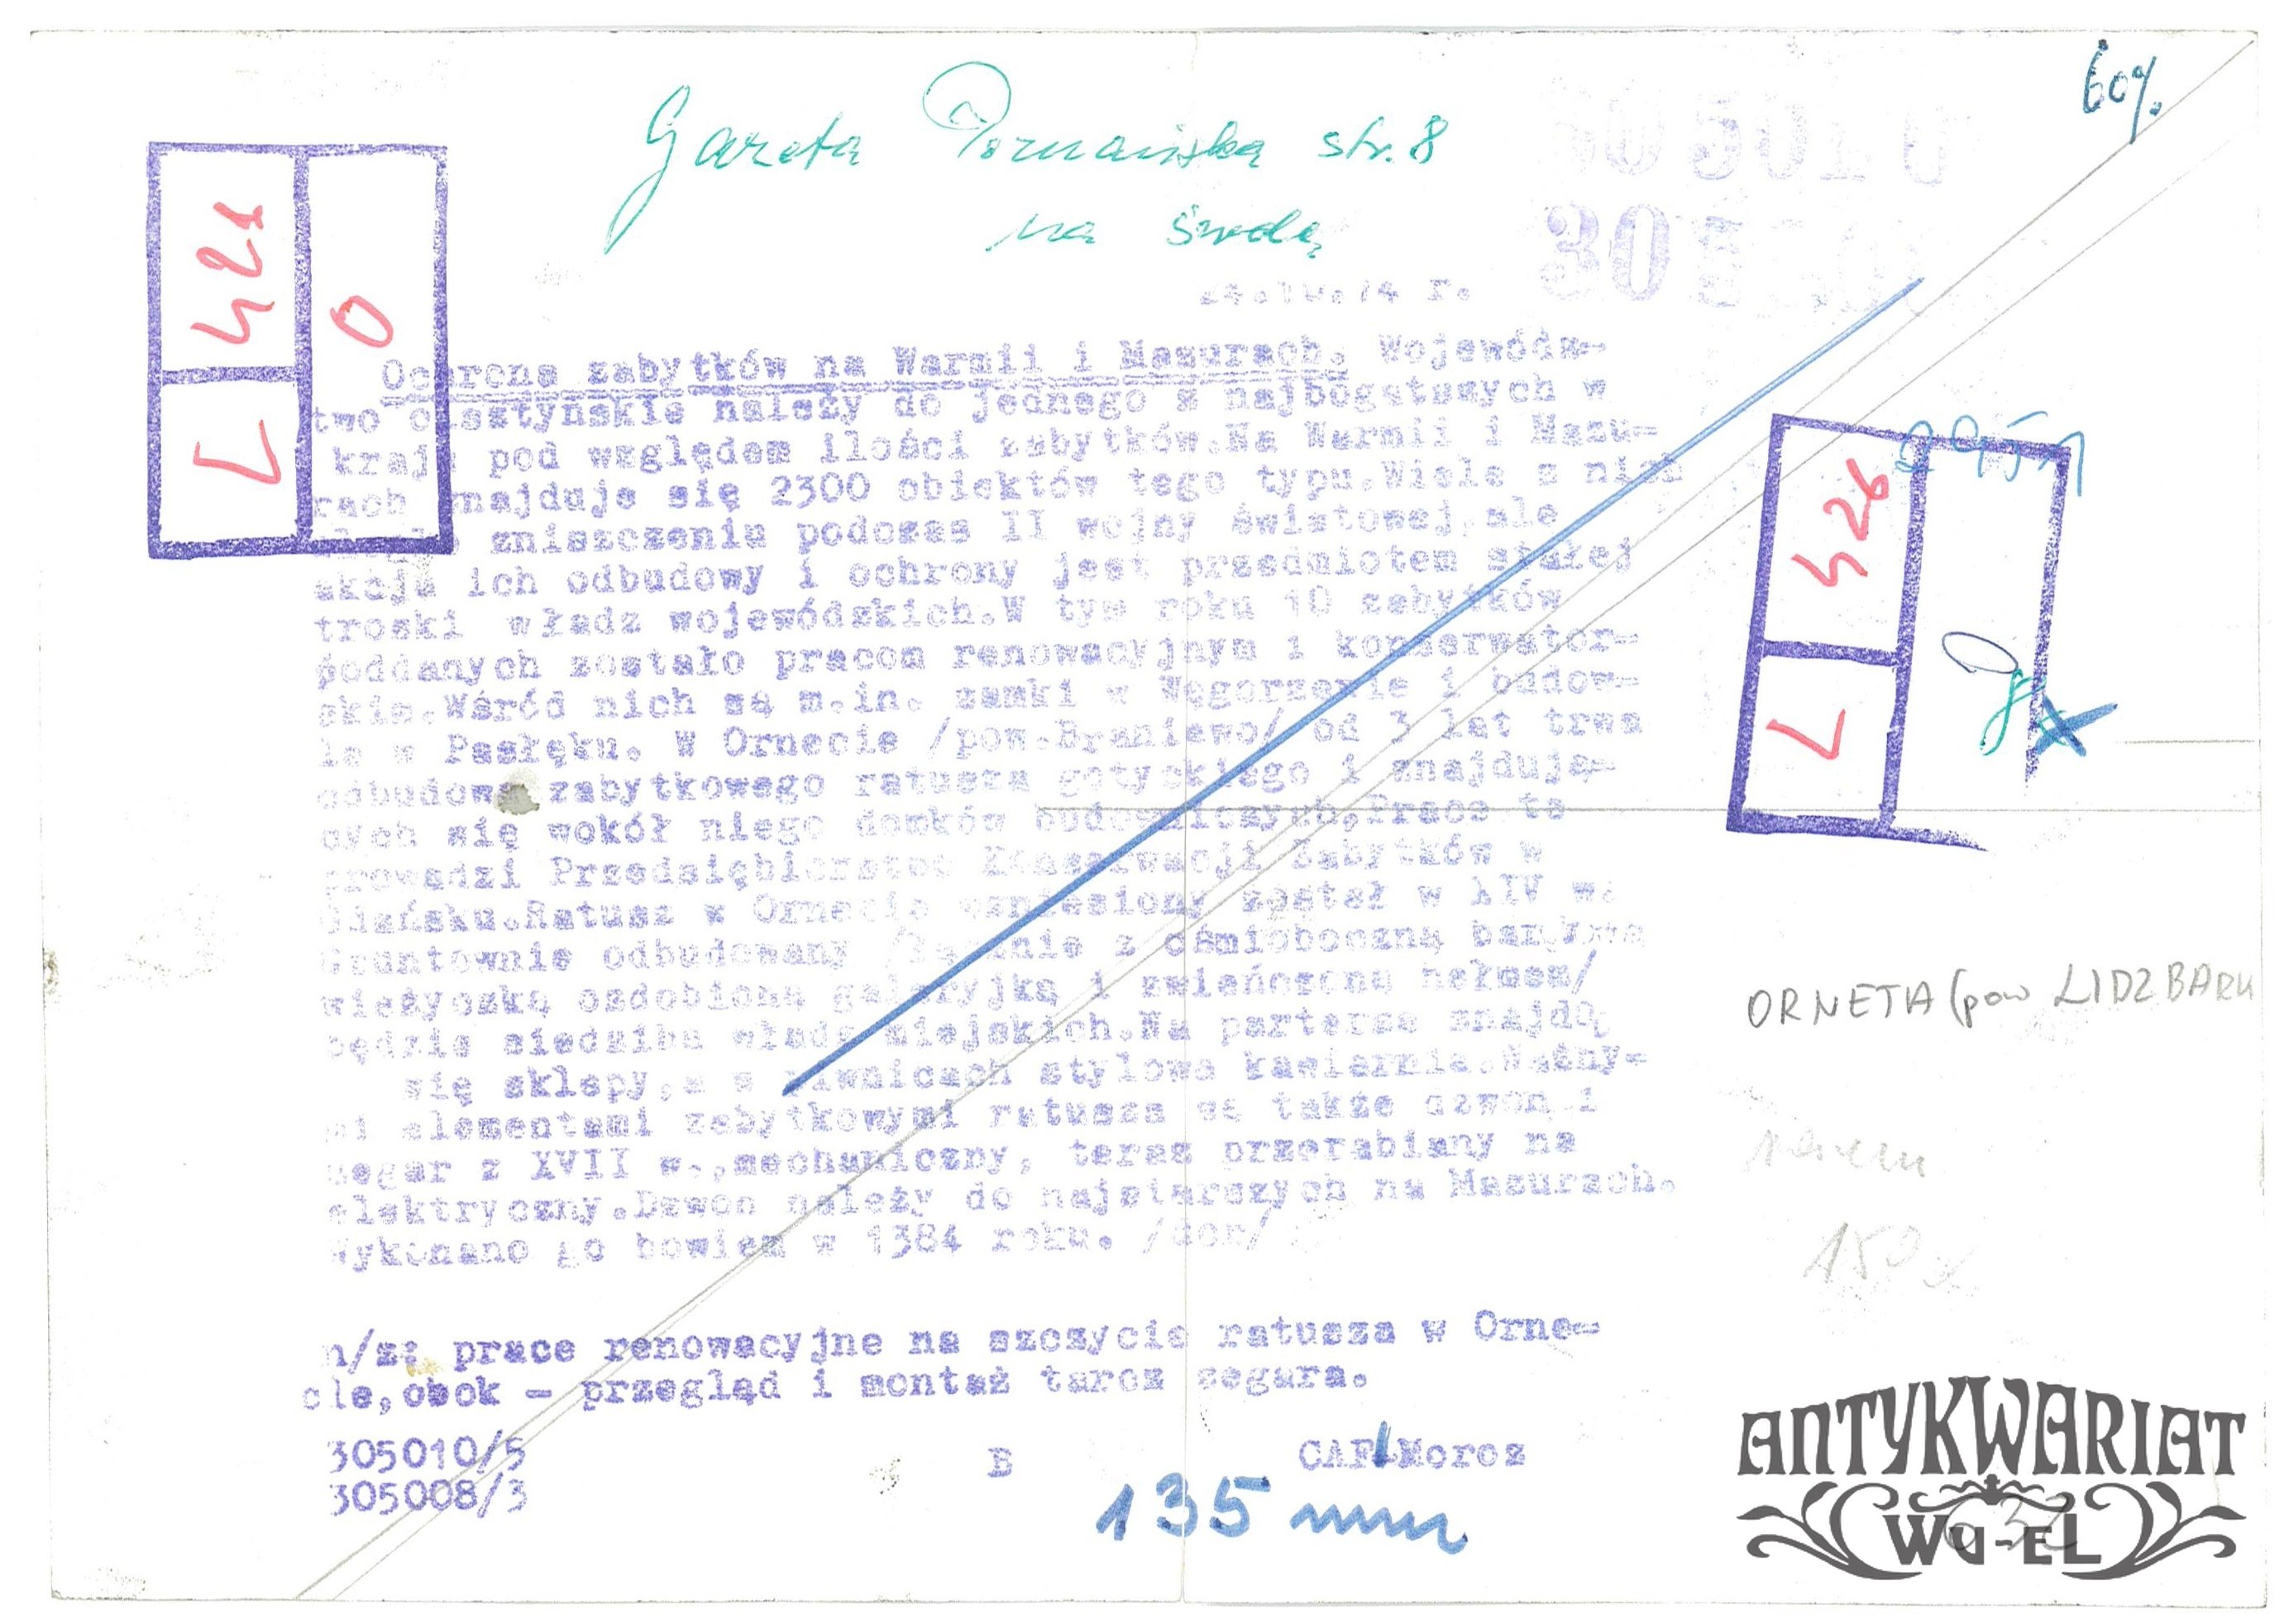 60%
Gazeta Poznańska str. 8
na środę
305010
305
24.10.74 r.
421
0
L
Ochrona zabytków na Warmii i Mazurach. Wojewódz-
two olsztyńskie należy do jednego z najbogatszych w
kraju pod względem ilości zabytków.Na Warmii i Mazu-
rach znajduje się 2300 obiektów tego typu.Wiele z nich
zniszczeniu podczas II wojny światowej,ale
akcja ich odbudowy i ochrony jest przedmiotem stałej
troski władz wojewódzkich.W tym roku 10 zabytków
poddanych zostało pracom renowacyjnym i konserwator-
skim.Wśród nich są m.in. zamki w Węgorzewie i budow-
la w Pasłęku. W Ornecie /pow.Braniewo/ od 3 lat trwa
odbudowa zabytkowego ratusza gotyckiego i znajdują-
cych się wokół niego domków budowniczych.Prace te
prowadzi Przedsiębiorstwo Konserwacji Zabytków w
Gdańsku.Ratusz w Ornecie wzniesiony został w XIV w.
Gruntownie odbudowany /łącznie z ośmioboczną barokową
wieżyczką ozdobioną galeryjką i zwieńczoną hełmem/
będzie siedzibą władz miejskich.Na parterze znajdą
się sklepy,a w piwnicach stylowa kawiarnia.Ważny-
mi elementami zabytkowymi ratusza są także dzwon i
zegar z XVII w.,mechaniczny, teraz przerabiany na
elektryczny.Dzwon należy do najstarszych na Mazurach.
Wykonano go bowiem w 1384 roku. /dor/
2951
426
L
8
ORNETA (pow LIDZBARK
razem
150
n/z: prace renowacyjne na szczycie ratusza w Orne-
cie,obok - przegląd i montaż tarcz zegara.
305010/5
305008/3
B
CAF Moroz
135 mm
ANTYKWARIAT
WU-EL
632